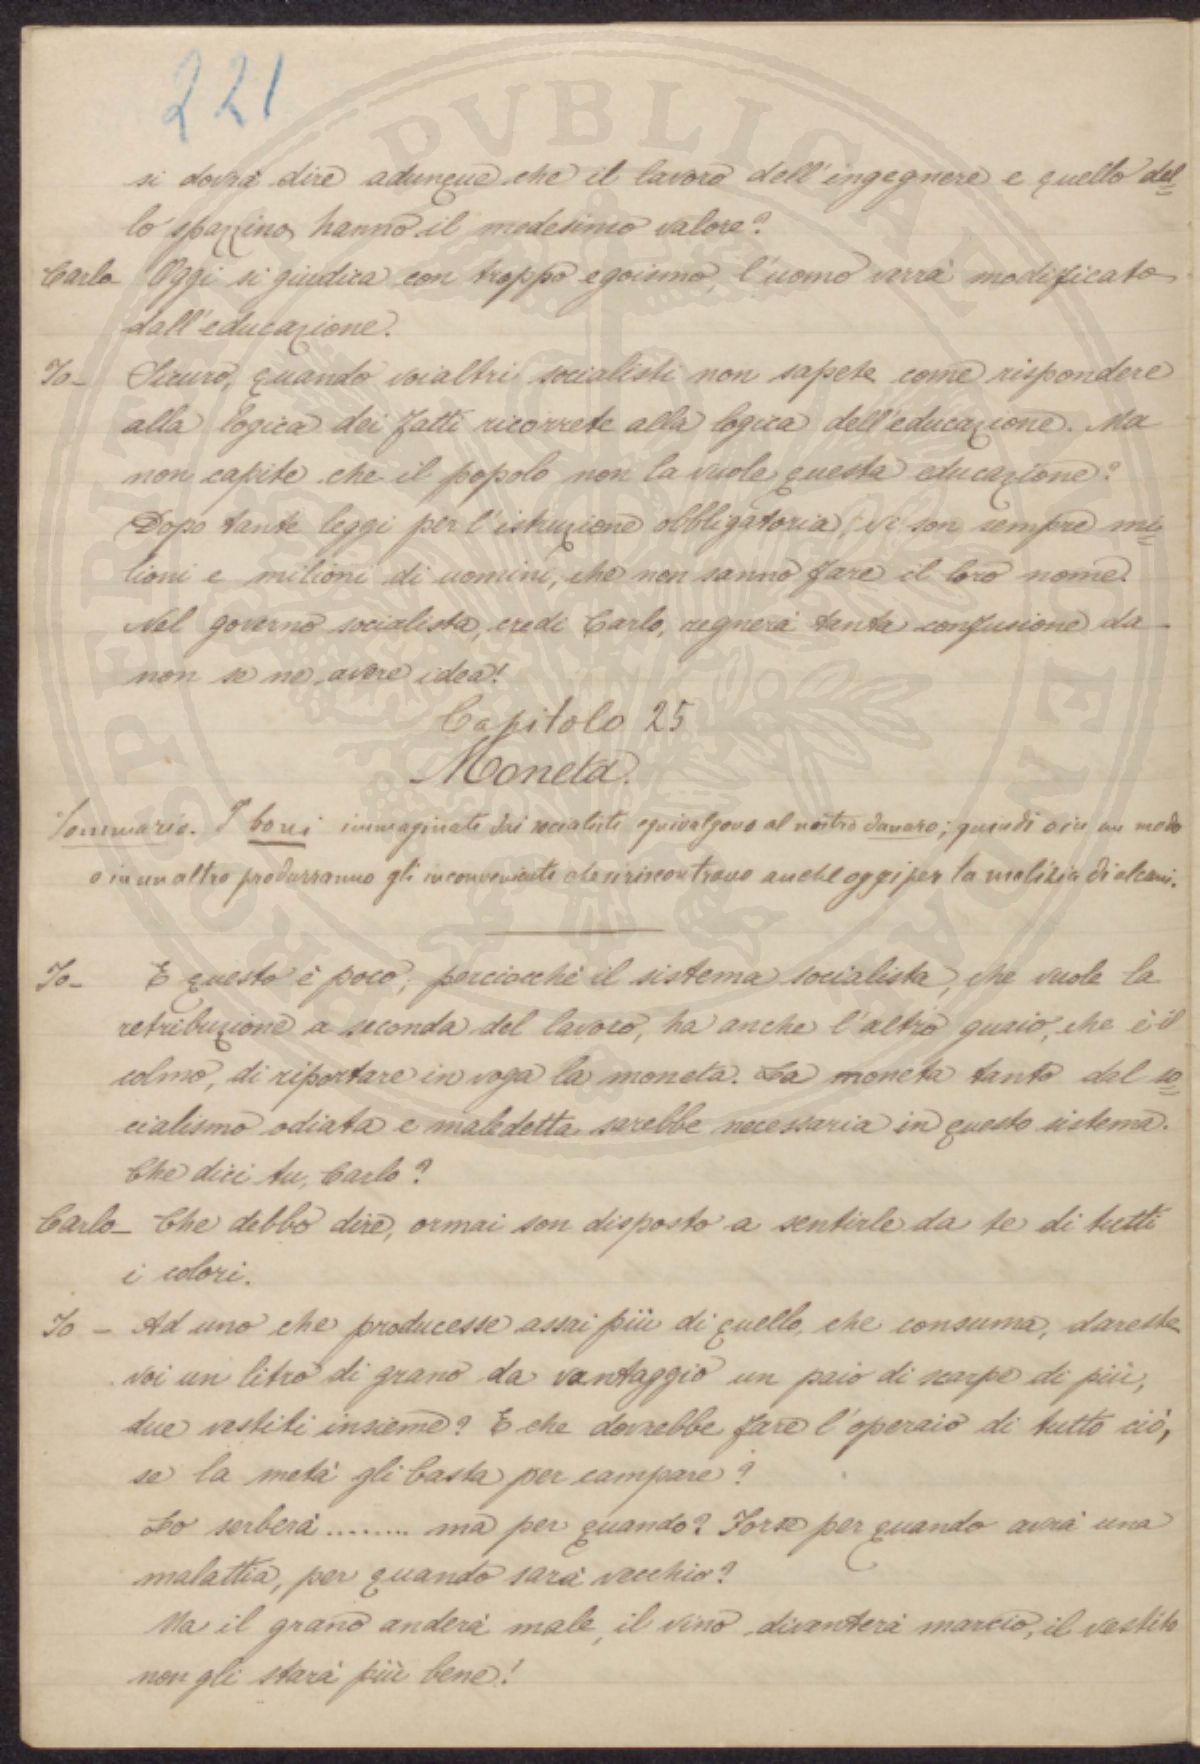 221
si dovrà dire adunque che il lavoro dell'ingegnere e quello del=
lo spazzino hanno il medesimo valore?
Carlo Oggi si giudica con troppo egoismo, l'uomo verrà modificato
dall'educazione.
Io- Sicuro, quando voialtri socialisti non sapete come rispondere
alla logica dei fatti ricorrete alla logica dell'educazione. Ma
non capite che il popolo non la vuole questa educazione?
Dopo tante leggi per l'istruzione obbligatoria, vi son sempre mi=
lioni e milioni di uomini, che non sanno fare il loro nome.
Nel governo socialista, credi Carlo, regnerà tanta confusione da
non se ne avere idea!
Capitolo 25
Moneta.
Sommario. I boni immaginati dai socialisti equivalgono al nostro danaro; quindi o in un modo
o in un altro produrranno gli inconvenienti che si riscontrano anche oggi per la malizia di alcuni.
Io- E questo è poco, perciocchè il sistema socialista, che vuole la
retribuzione a seconda del lavoro, ha anche l'altro guaio, che è il
colmo, di riportare in voga la moneta. La moneta tanto dal so=
cialismo odiata e maledetta sarebbe necessaria in questo sistema.
Che dici tu, Carlo?
Carlo- Che debbo dire, ormai son disposto a sentirle da te di tutti
i colori.
Io - Ad uno che producesse assai più di quello, che consuma, dareste
voi un litro di grano da vantaggio un paio di scarpe di più,
due vestiti insieme? E che dovrebbe fare l'operaio di tutto ciò,
se la metà gli basta per campare?
Lo serberà ........ ma per quando? Forse per quando avrà una
malattia, per quando sarà vecchio?
Ma il grano anderà male, il vino diventerà marcio, il vestito
non gli starà più bene!